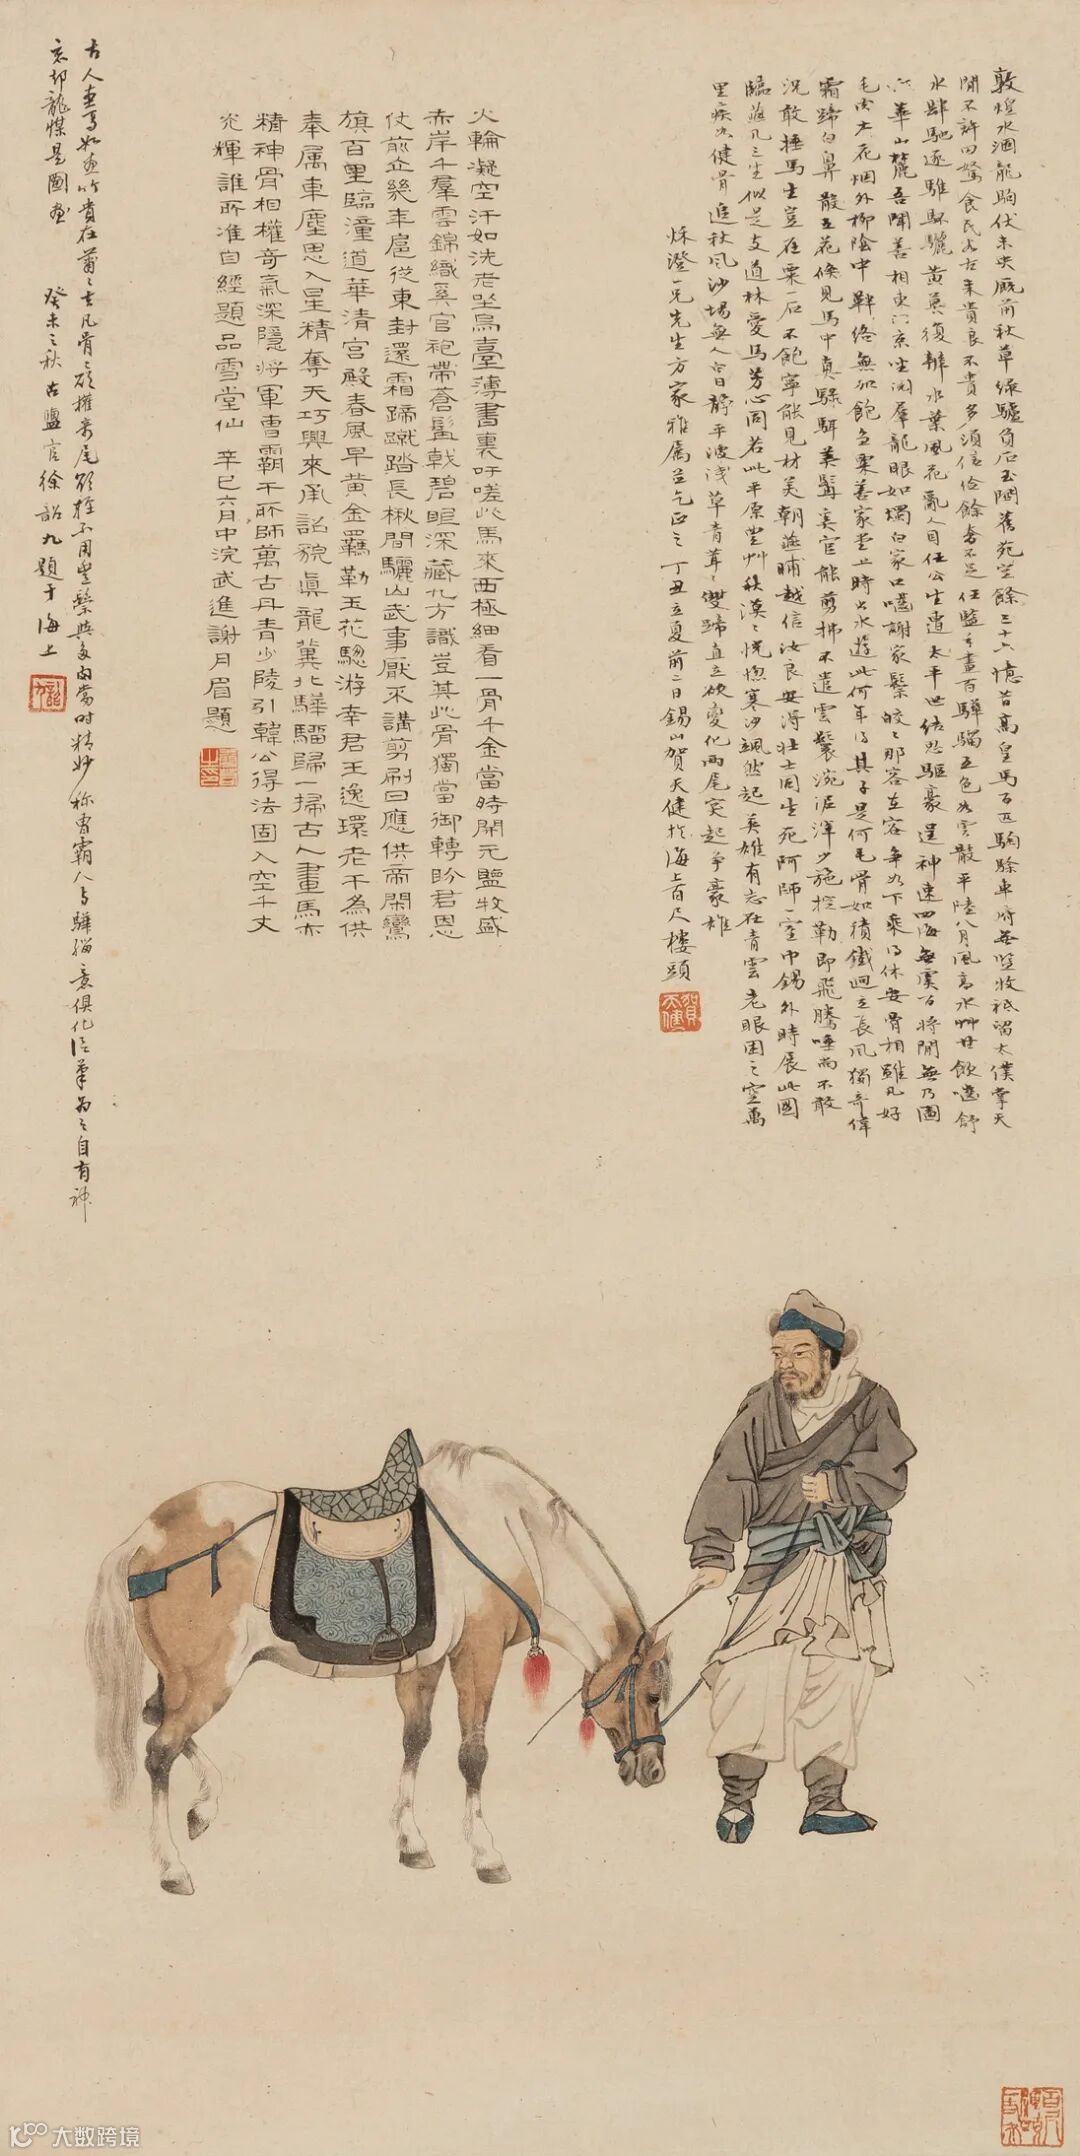 敦煌水涸龍駒伏未央廄前秋草綠驢負石玉關舊苑空餘三十六憶昔高皇馬百匹駒騄車府無監牧祗留太僕掌天
閑不許田駑食民谷古來貴良不貴多須信儉餘奢不足任監手畫百驊騮五色如雲散平陸八月風高水艸甘飲嚙舒
水肆馳逐騅駓驪黃奚復辨水葉風花亂人目任公生遭太平世結思驅豪逞神速四海無虞百將閒無乃圖
華山麓吾聞善相東門京坐閱群龍眼如燭白家口嚙謝家鬃皎皎那容在年如下乘得休安骨相雖凡好
毛肉花烟外柳陰中鞿絡無加飽芻粟善家堂上時出水遊此何年得其子是何毛骨如積鐵迥立長風獨奇偉
霜蹄白鼻散五花倏見馬中真騄駬英髯奚官能剪拂不遣雲鬟涴泥滓少施控勒即飛騰唾而不敢
況敢捶馬生豈在粟一石不飽寧能見材美朝燕晡越信汝良安得壯士同生死阿師一室中錫外時展此圖
臨燕几三生似是支道林愛馬芳心同若此平原豐艸秋漠漠恍惚寒沙颯然起英雄有志在青雲老眼困之空萬
里疾如健骨追秋風沙場無人白日靜平波淺草青茸茸雙蹄直立欲變化兩尾突起爭豪雄
烁澄一兄先生方家雅屬並乞正之丁丑立夏前二日錫山賀天健於海上百尺樓頭
賀天健
火輪凝空汗如洗老坐烏臺薄書裏吁嗟此馬來西極細看一骨千金當時開元監牧盛
赤岸千羣雲錦織奚官袍帶蒼髯戟碧眼深藏九方識豈其此骨獨當御轉盼君恩
仗前立幾年扈從東封還霜蹄蹴踏長楸間驪山武事厭不講剪刷日應供帝閑鸞
旗百里臨潼道華清宮殿春風早黃金羈勒玉花驄游幸君王逸環老干為供
奉屬車塵思入星精奪天巧興來承詔貌真龍冀北驊騮歸一掃古人畫馬亦
精神骨相權奇氣深隱將軍曹霸不所師萬古丹青少陵引韓公得法固入空千丈
光輝誰所准自經題品雪堂仙 辛巳六月中浣武進謝月眉題
古人畫馬如畫竹貴在蕭蕭去凡骨頭權奇尾不用豐鬃與多肉當時精妙稱曹霸八馬驊騮意俱化信筆為之自有神
忘却龍媒是圖畫 癸未之秋古鹽官徐韶九題于海上
大数跨境